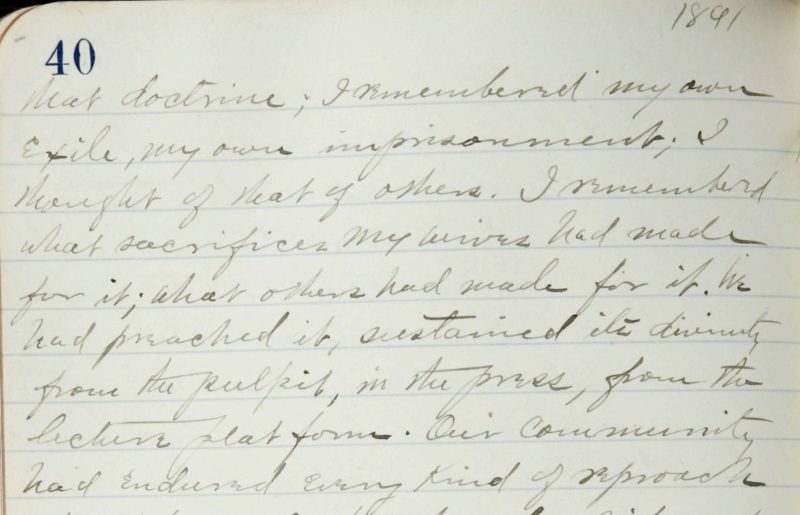 1891
40
that doctrine; I remembered my own
Exile, my own imprisonment; I
thought of that of others. I rememberd
what sacrifices my wives had made
for it; what others had made for it. We
had preached it, sustained its divinity
from the pulpit, in the press, from the
lecture platform. Our community
had Endured Every Kind of reproach